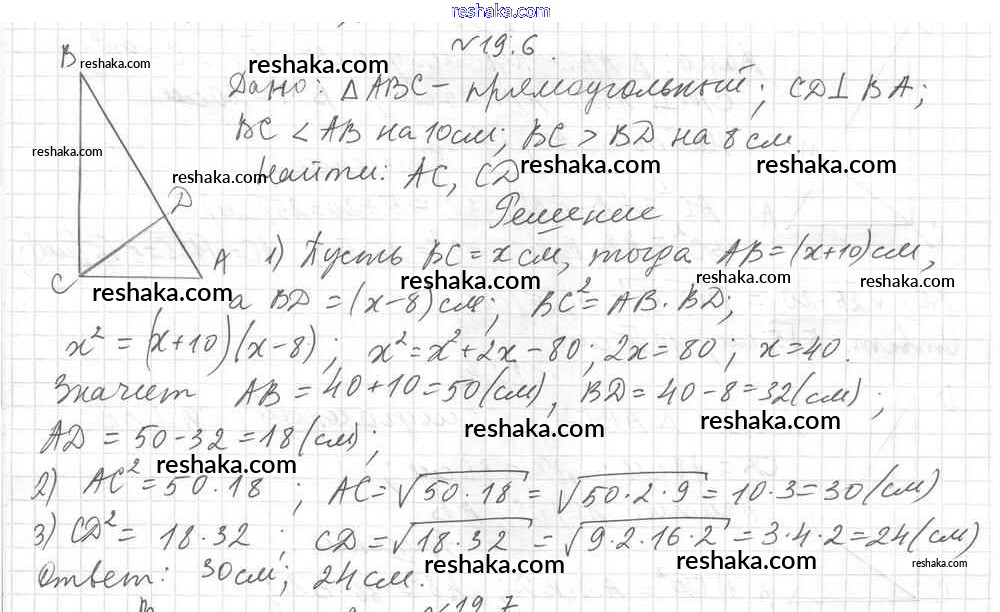 reshaka.com
№19.6
B reshaka.com reshaka.com
Дано: △ABC – прямоугольный; CD⊥BA;
BC < AB на 10см; BC > BD на 8 см.
reshaka.com reshaka.com reshaka.com
Найти: AC, CD
reshaka.com
D
Решение
1) Пусть BC = x см, тогда AB = (x+10) см,
A
C reshaka.com reshaka.com reshaka.com reshaka.com
а BD = (x-8) см; BC² = AB · BD;
x² = (x+10)(x-8); x² = x² + 2x - 80; 2x = 80; x = 40.
Значит AB = 40 + 10 = 50 (см), BD = 40 - 8 = 32 (см);
reshaka.com reshaka.com
AD = 50 - 32 = 18 (см);
reshaka.com
2) AC² = 50 · 18; AC = √50 · 18 = √50 · 2 · 9 = 10 · 3 = 30 (см)
3) CD² = 18 · 32; CD = √18 · 32 = √9 · 2 · 16 · 2 = 3 · 4 · 2 = 24 (см)
reshaka.com reshaka.com reshaka.com
Ответ: 30 см; 24 см.
№19.7